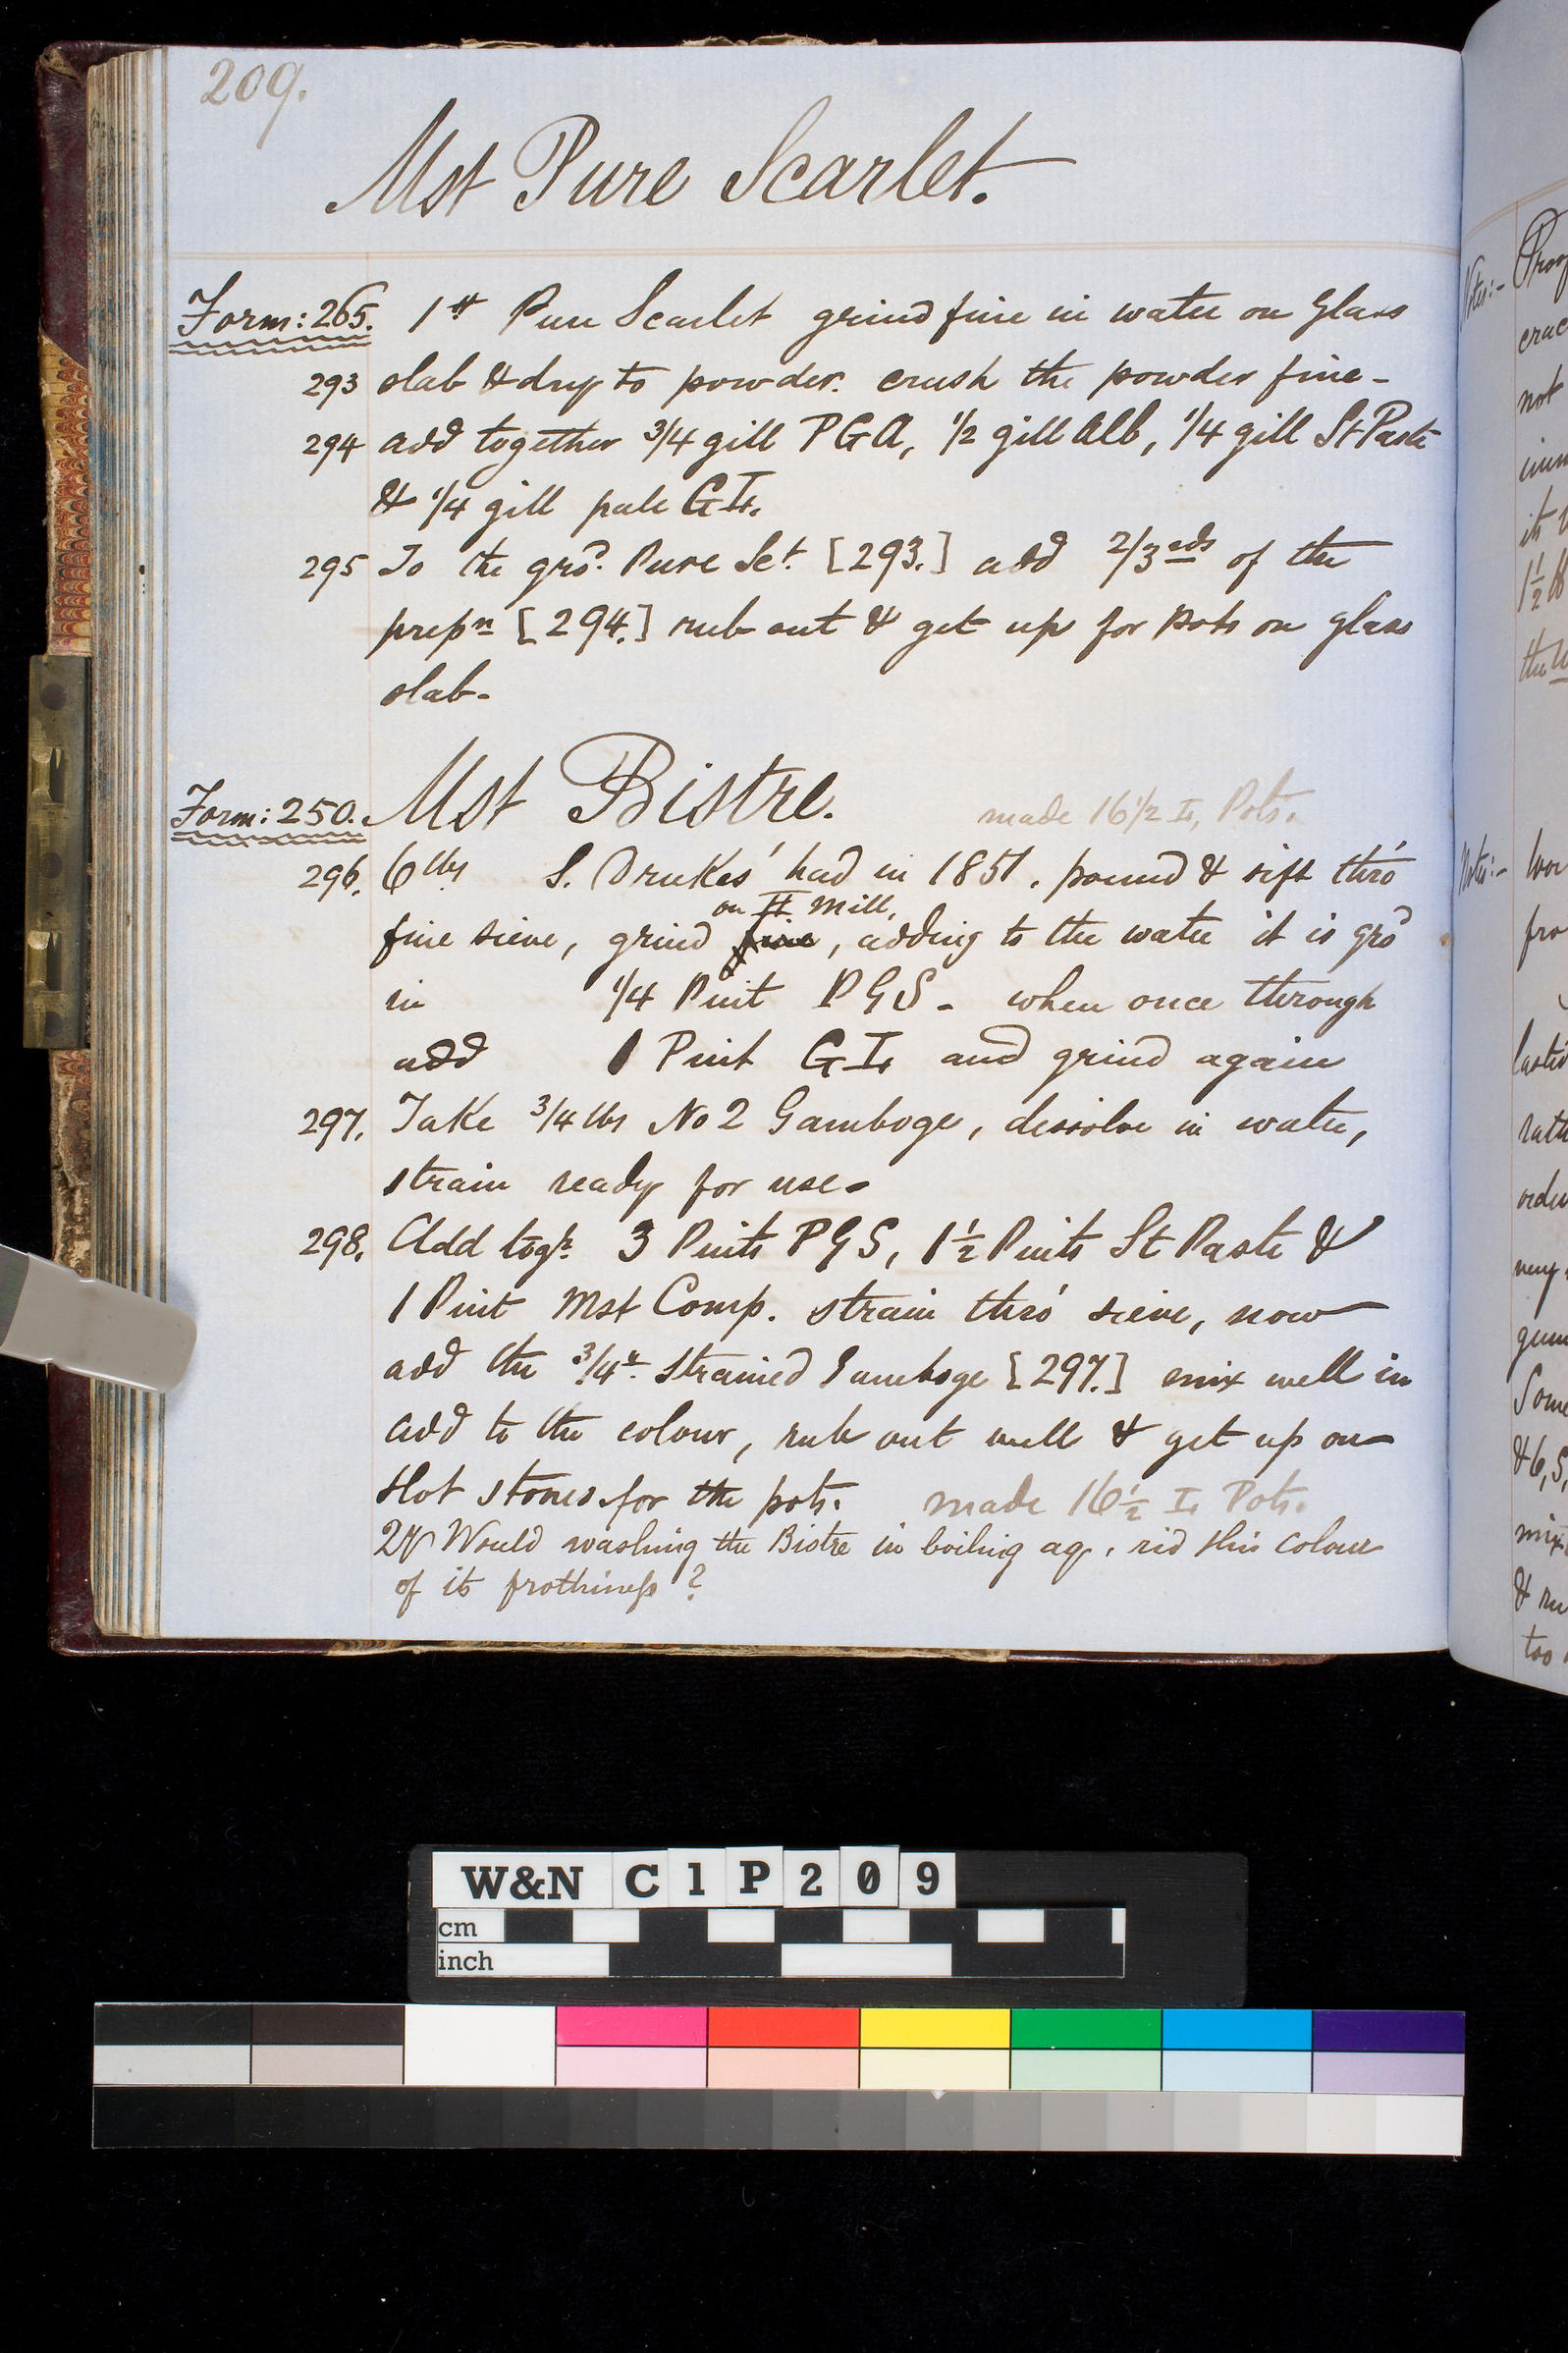 209.
Mst Pure Scarlet.
Form: 265. 1 ℔ Pure Scarlet grind fine in water on Glass
293 slab & dry to powder. crush the powder fine -
294 add together 3/4 gill PGA, 1/2 gill Alb, 1/4 gill St Paste
& 1/4 gill pale G I.
295 To the gro.d Pure Sct. [293.] add 2/3eds of the
prepn [294.] rub out & get up for pots on glass
slab -
Form: 250. Mst Bistre. made 16 1/2 I, Pots.
296. 6 lbs S. Drukes' had in 1851. pound & sift thro'
on II Mill,
fine sieve, grind fine, adding to the water it is gro.d
in 1/4 Pint PGS - when once through
add 1 Pint G I, and grind again
297. Take 3/4 lbs No 2 Gamboge, dissolve in water,
strain ready for use -
298. Add togr. 3 Pints PGS, 1 1/2 Pints St Paste &
1 Pint Mst Comp. strain thro' sieve, now
add the 3/4 ℔ strained Gamboge [297.] mix well in
add to the colour, rub out well & get up on
Hot stones for the pots. made 16 1/2 I, Pots.
Qy Would washing the Bistre in boiling aq. rid this colour
of its frothiness?
Notes:-
crac
not
its
1 1/2
the
Notes:-
fro
rath
gum
Some
& 6, S,
mix
too
W&N C1P209
cm
inch